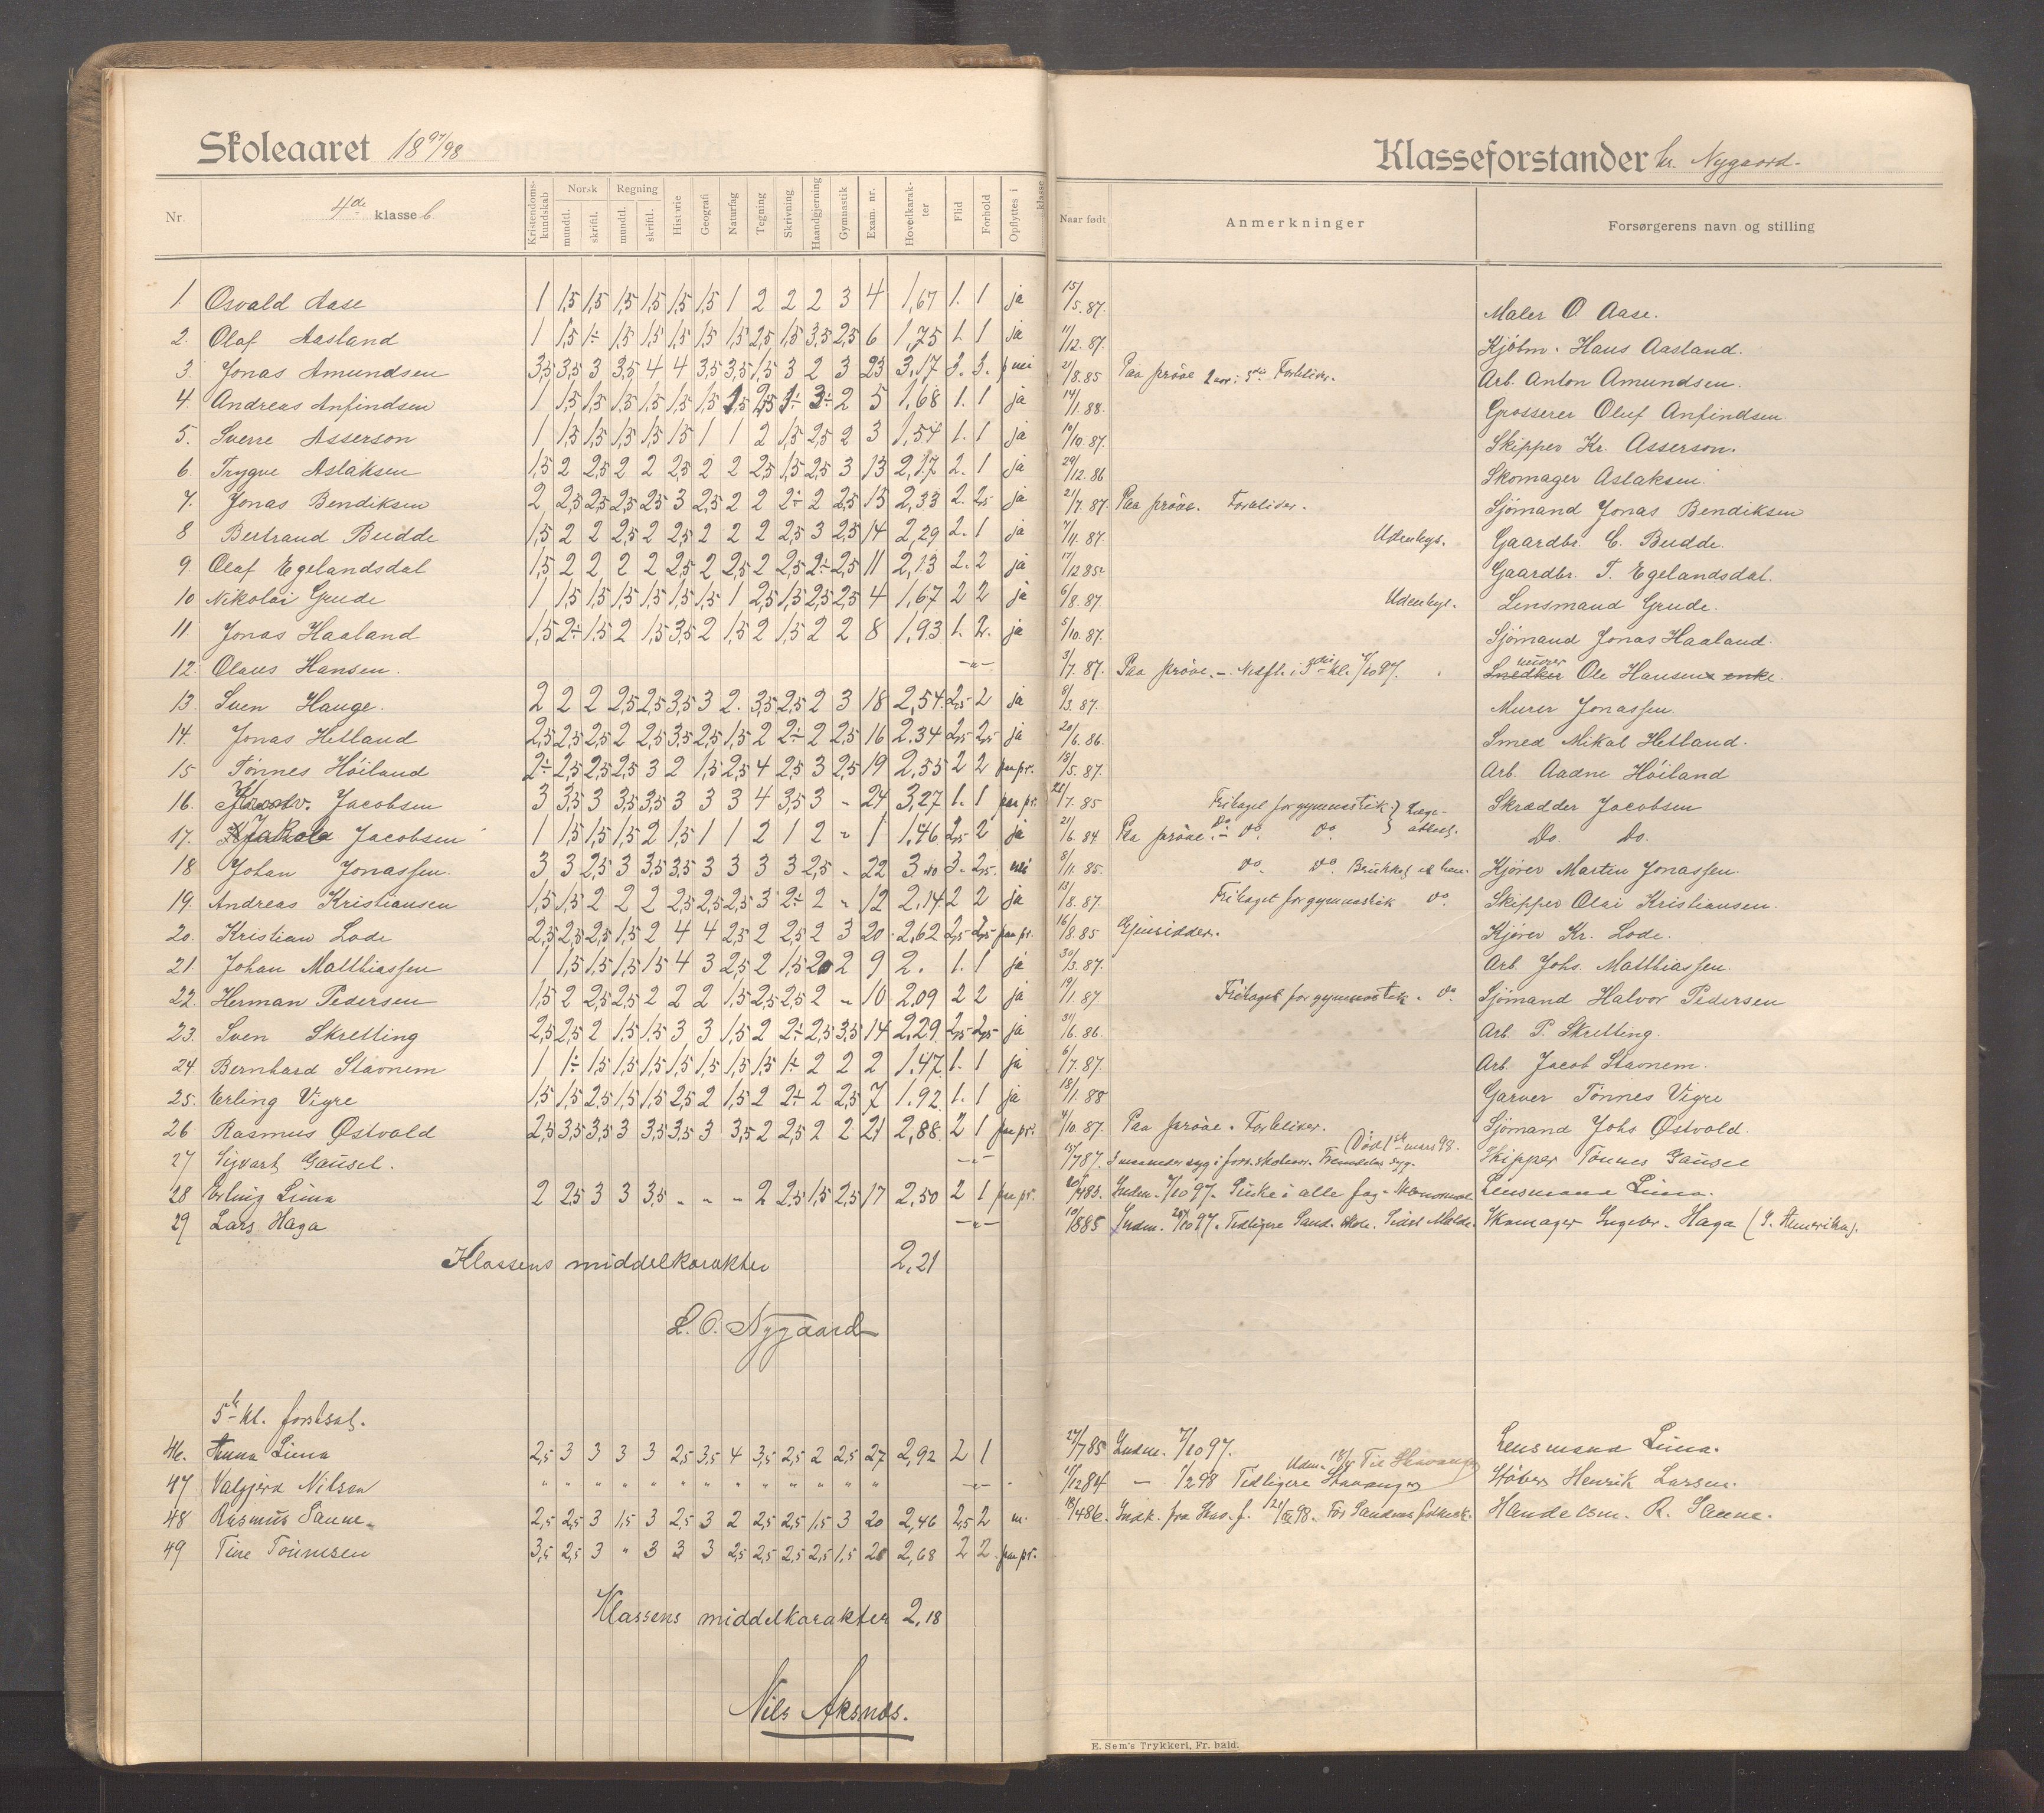 Skoleaaret 1897/98
Klasseforstander hr. Nygaard.
Nr.
4de klasse b
Kristendomskundskab
Norsk mundtl. skriftl.
Regning mundtl. skriftl.
Historie
Geografi
Naturfag
Tegning
Skrivning
Haandgjerning
Gymnastik
Exam. nr.
Hovedkarakter
Flid
Forhold
Opflyttes i klasse
Naar født
Anmerkninger
Forsørgerens navn og stilling
1. Osvald Aase 1 1,5 1,5 1,5 1,5 1,5 1,5 1 2 2 2 3 4 1,67 1. 1 ja 15/5.87. Maler O. Aase.
2. Olaf Aasland 1 1,5 1÷ 1,5 1,5 1,5 1,5 1,5 2,5 1,5 3,5 2,5 6 1,75 1. 1 ja 11/12.87. Kjøbm. Hans Aasland.
3. Jonas Amundsen 3,5 3,5 3 3,5 4 4 3,5 3,5 1,5 3 2 3 23 3,17 3. 3. 21/8.85 Paa prøve 2 aar i 3die Forbliver. Arb. Anton Amundsen.
4. Andreas Anfindsen 1 1,5 1,5 1,5 1,5 1,5 1,5 1,5 2,5 1÷ 3÷ 2 5 1,68 1. 1 ja 14/1.88. Grosserer Oluf Anfindsen
5. Sverre Asserson 1 1,5 1,5 1,5 1,5 1,5 1 1 2 1,5 2,5 2 3 1,54 1. 1 ja 10/10.87. Skipper Kr. Asserson.
6. Trygve Aslaksen 1,5 2 2,5 2 2 2,5 2 2 2,5 1,5 2,5 3 13 2,17 2. 1 ja 29/12.86 Skomager Aslaksen
7. Jonas Bendiksen 2 2,5 2,5 2,5 2,5 3 2,5 2 2 2÷ 2 2,5 15 2,33 2. 2,5 ja 21/7.87. Paa prøve. Forbliver. Sjømand Jonas Bendiksen
8 Bertrand Budde 1,5 2 2 2,5 2 2,5 2 2 2 2,5 3 2,5 14 2,29 2. 1 ja 7/11.87. Udenbys. Gaardbr. C. Budde.
9. Olaf Egelandsdal 1,5 2 2 2 2 2,5 2 2,5 2 2,5 2÷ 2,5 11 2,13 2. 2 ja 17/12 85. Gaardbr. T. Egelandsdal.
10 Nikolai Grude 1 1,5 1,5 1,5 1,5 1,5 1,5 1 2,5 1,5 2,5 2,5 4 1,67 2 2 ja 6/8.87. Udenbys. Lensmand Grude.
11 Jonas Haaland 1,5 2÷ 1,5 2 1,5 3,5 2 1,5 2 1,5 2 2 8 1,93 1. 2. ja 5/10.87. Sjømand Jonas Haaland.
12. Olaus Hansen. 3/7.87. Paa prøve. – Nedfl. i 3die kl. 7/10 97. murer Snedker Ole Hansens enke.
13. Sven Hauge. 2 2 2 2,5 2,5 3,5 3 2. 3,5 2,5 2 3 18 2,54. 2,5 2 ja 8/3.87. Murer Jonassen.
14. Jonas Hetland 2,5 2,5 2,5 2 2,5 3,5 2,5 1,5 2 2÷ 2 2,5 16 2.34 2,5 2,5 ja 20/6.86. Smed Mikal Hetland.
15 Tønnes Høiland 2÷ 2,5 2,5 2,5 3 2 1,5 2,5 4 2,5 3 2,5 19 2.55 2 2 paa pr. 18/5.87. Arb. Aadne Høiland
16. Jacobsen 3 3,5 3 3,5 3,5 3 3 3 4 3,5 3 - 24 3,27 1. 1 paa pr. 22/7.85 Fritaget for gymnastik. Læge- Skrædder Jacobsen
17. Jakob Jacobsen 1 1,5 1,5 1,5 2 1,5 1 1 2 1 2 " 1 1.46 2,5 2 ja 21/6.84 Paa prøve. – do. do. attest. Do. Do.
18 Johan Jonassen. 3 3 2,5 3 3,5 3,5 3 3 3 3 2,5 - 22 3.00 3. 2,5. nei 8/11.85. do. do. Kjører Martin Jonassen
19. Andreas Kristiansen 1,5 1,5 2 2 2 2,5 2,5 2,5 3 2÷ 2 " 12 2.14 2 2 ja 13/8.87. Fritaget for gymnastik do. Skipper Olai Kristiansen.
20. Kristian Lode 2,5 2,5 2,5 1,5 2 4 4 2,5 2 2,5 2 3 20. 2,62 2,5 2,5 paa pr. 16/8.85 Gjensidder. Kjører Kr. Lode.
21. Johan Matthiassen 1 1,5 1,5 1,5 1,5 4 3 2,5 2 1,5 2 2 9 2. 1. 1 ja 30/3.87. Arb. Johs. Matthiassen.
22. Herman Pedersen 1,5 2 2,5 2,5 2 2 2 1,5 2,5 2,5 2 " 10 2.09 2 2 ja 19/1.87 Fritaget for gymnastik. do. Sjømand Halvor Pedersen
23. Sven Skretting 2,5 2,5 2 1,5 1,5 3 3 1,5 2 2÷ 2,5 3,5 14 2,29 2,5 2,5 ja 31/6.86. Arb. P. Skretting.
24. Bernhard Stavnem 1 1÷ 1,5 1,5 1,5 1,5 1,5 1,5 1,5 1÷ 2 2 2 1.47 1. 1 ja 6/7.87. Arb. Jacob Stavnem.
25. Erling Vigre 1,5 1,5 2,5 1,5 1,5 2,5 2 1,5 2 2÷ 2 2,5 7 1.92 1. 1 ja 18/1.88 Garver Tønnes Vigre
26 Rasmus Østvold 2,5 3,5 3,5 3 3,5 3,5 3 3,5 2 2,5 2 2 21 2,88. 2 1 paa pr. 4/10.87. Paa prøve. Forbliver. Sjømand Johs. Østvold.
27 Sigvart Gausel. 15/7 87. 3 maaneder syg i forr. skoleaar. Fremdeles syg. (Død 1ste mars 98. Skipper Tønnes Gausel
28 Erling Lima 2 2,5 3 3 3,5 - - - 2 2,5 1,5 2,5 17 2,50 2 1 paa pr. 20/4 85. Indm. 7/10 97. Svike i alle fag. Lensmand Lima.
29 Lars Haga 10/8 85 Indm. 10 97. Tidligere Sand. skole. Sidst Molde. Skomager Ingebr. Haga (I Amerika).
Klassens middelkarakter 2,21
L. O. Nygaard
5te kl. fortsat.
46. Anna Lima 2,5 3 3 3 3 2,5 3,5 4 3,5 2,5 2 2,5 27 2,92 2 1 27/7 85 Indm. 7/10 97. Lensmand Lima.
47 Valgjerd Nilsen " " " " " " " " " " " " " 17/12 84 — 1/2 98 Tidligere Stavanger Udm. Til Stavanger Støber Henrik Larsen.
48 Rasmus Sanne. 2,5 2,5 3 1,5 3 2,5 3 2 2,5 2,5 1,5 3 20 2,46 2,5 2 m. 18/4 86. Indk. fra Hus. f. 98. Før Sandnes folkesk. Handelsm. R. Sanne.
49 Tine Tønnesen 3,5 2,5 3 " 3 3 3 2,5 2,5 2,5 2,5 1,5 20 2,68 2 2 paa pr.
Klassens middelkarakter 2,18
Nils Aksnes.
E. Sem's Trykkeri, Fr. hald.